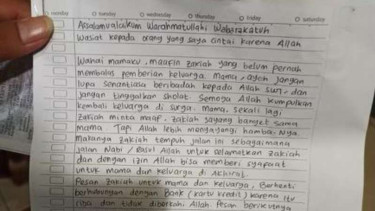 monday
sunday
wednesday
thursday
friday
saturday
Assalamualaikum Warahmatullahi Wabarakatuh
Wasiat kepada orang yang saya cintai karena Allah
Wahai mamaku, maafin zakiah yang belum pernah
membalas pemberian keluarga. Mama, ayah jangan
lupa senantiasa beribadah kepada Allah SWT, dan
jangan tinggalkan sholat. Semoga Allah kumpulkan
kembali keluarga di surga. Mama, sekali lagi
zakiah minta maaf. zakiah sayang banget sama
mama. Tapi Allah lebih menyayangi hamba-Nya.
makanya zakiah tempuh jalan ini sebagaimana
jalan Nabi / Rasul Allah untuk selamatkan zakiah
dan dengan izin Allah bisa memberi syafaat
untuk mama dan keluarga di Akhirat.
Pesan zakiah untuk mama dan keluarga, Berhenti
berhubungan dengan Bank (kartu kredit) karena itu
riba dan tidak diberkahi Allah Pesan berikutnya